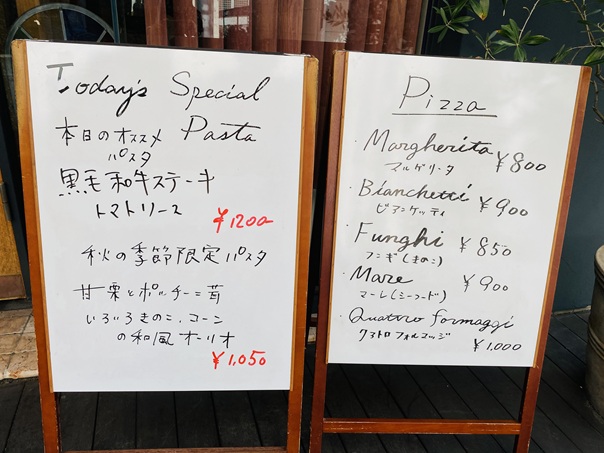 Today's Special
Pasta
本日のオススメ
パスタ
黒毛和牛ステーキ
トマトソース
¥1200
秋の季節限定パスタ
甘栗とポルチーニ茸
いろいろきのこ、コーン
の和風オーリオ
¥1,050
Pizza
・Margherita ¥800
マルゲリータ
・Bianchetti ¥900
ビアンケッティ
・Funghi ¥850
フンギ(きのこ)
・Mare ¥900
マーレ(シーフード)
・Quattro formaggi
クアトロフォルマッジ ¥1,000